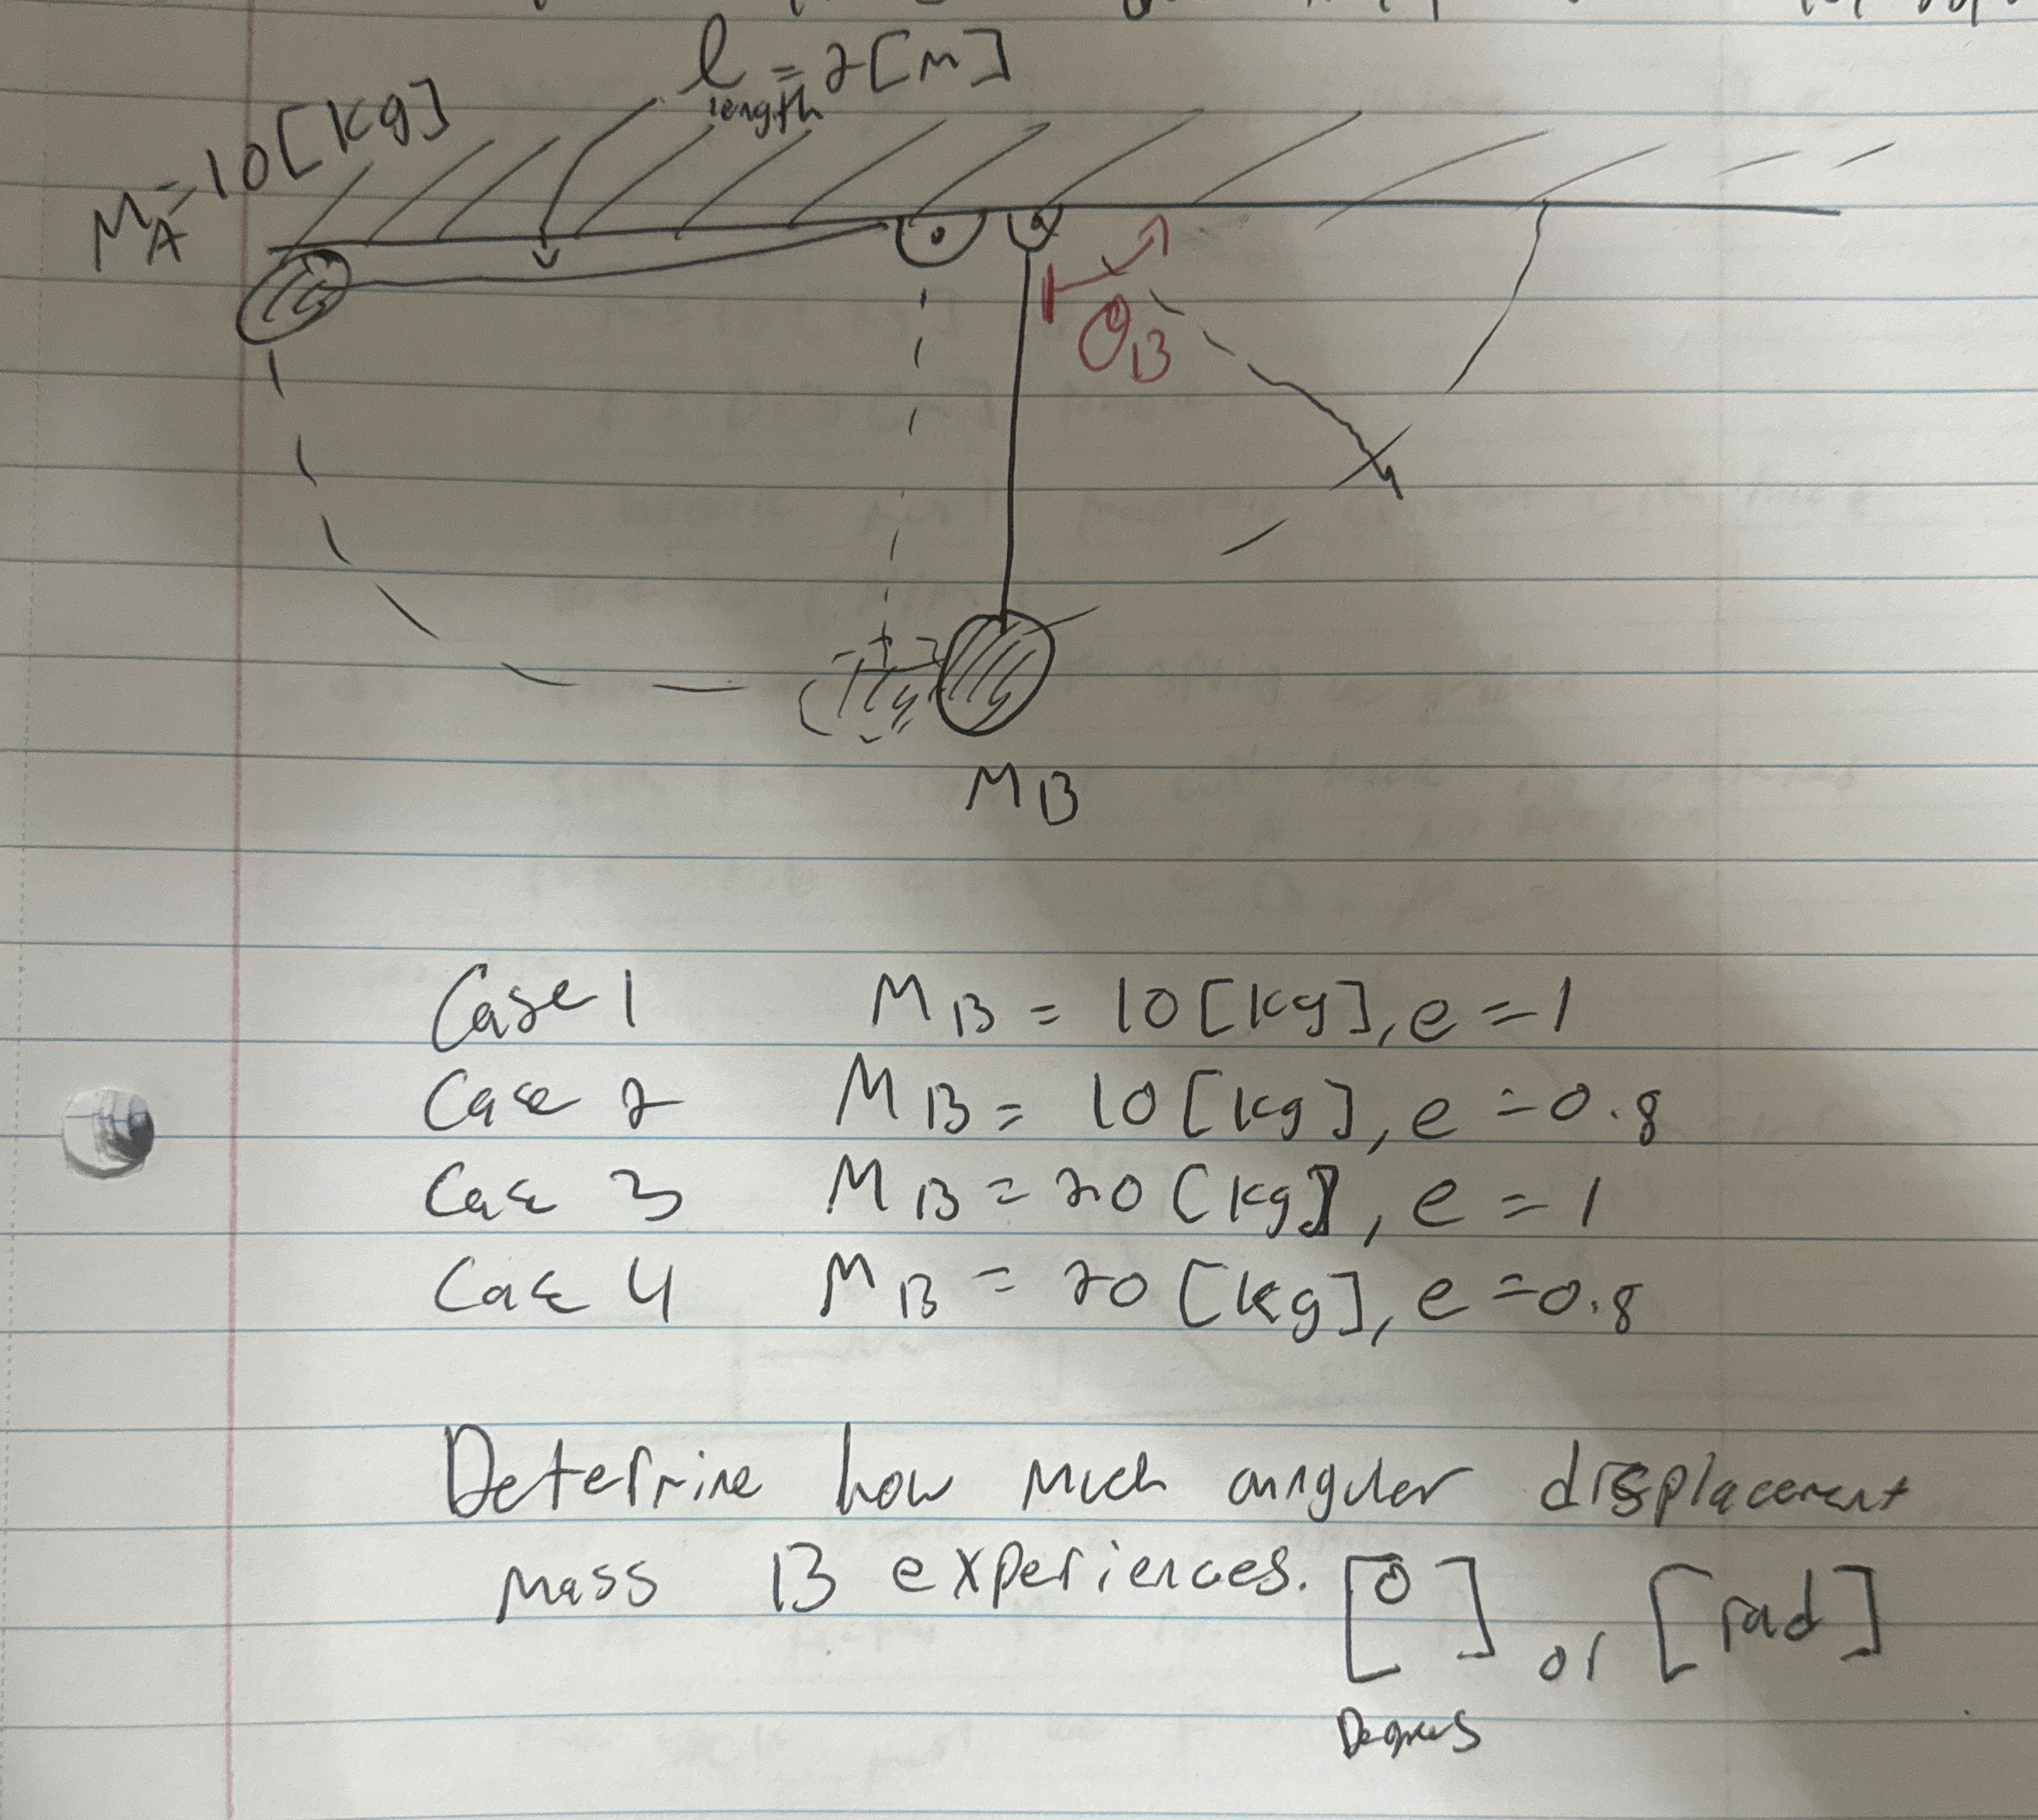 l = 2[m]
length
MA = 10[kg]
θB
MB
Case 1 MB = 10[kg], e = 1
Case 2 MB = 10[kg], e = 0.8
Case 3 MB = 20[kg], e = 1
Case 4 MB = 20[kg], e = 0.8
Determine how much angular displacement
mass B experiences. [°] or [rad]
Degrees